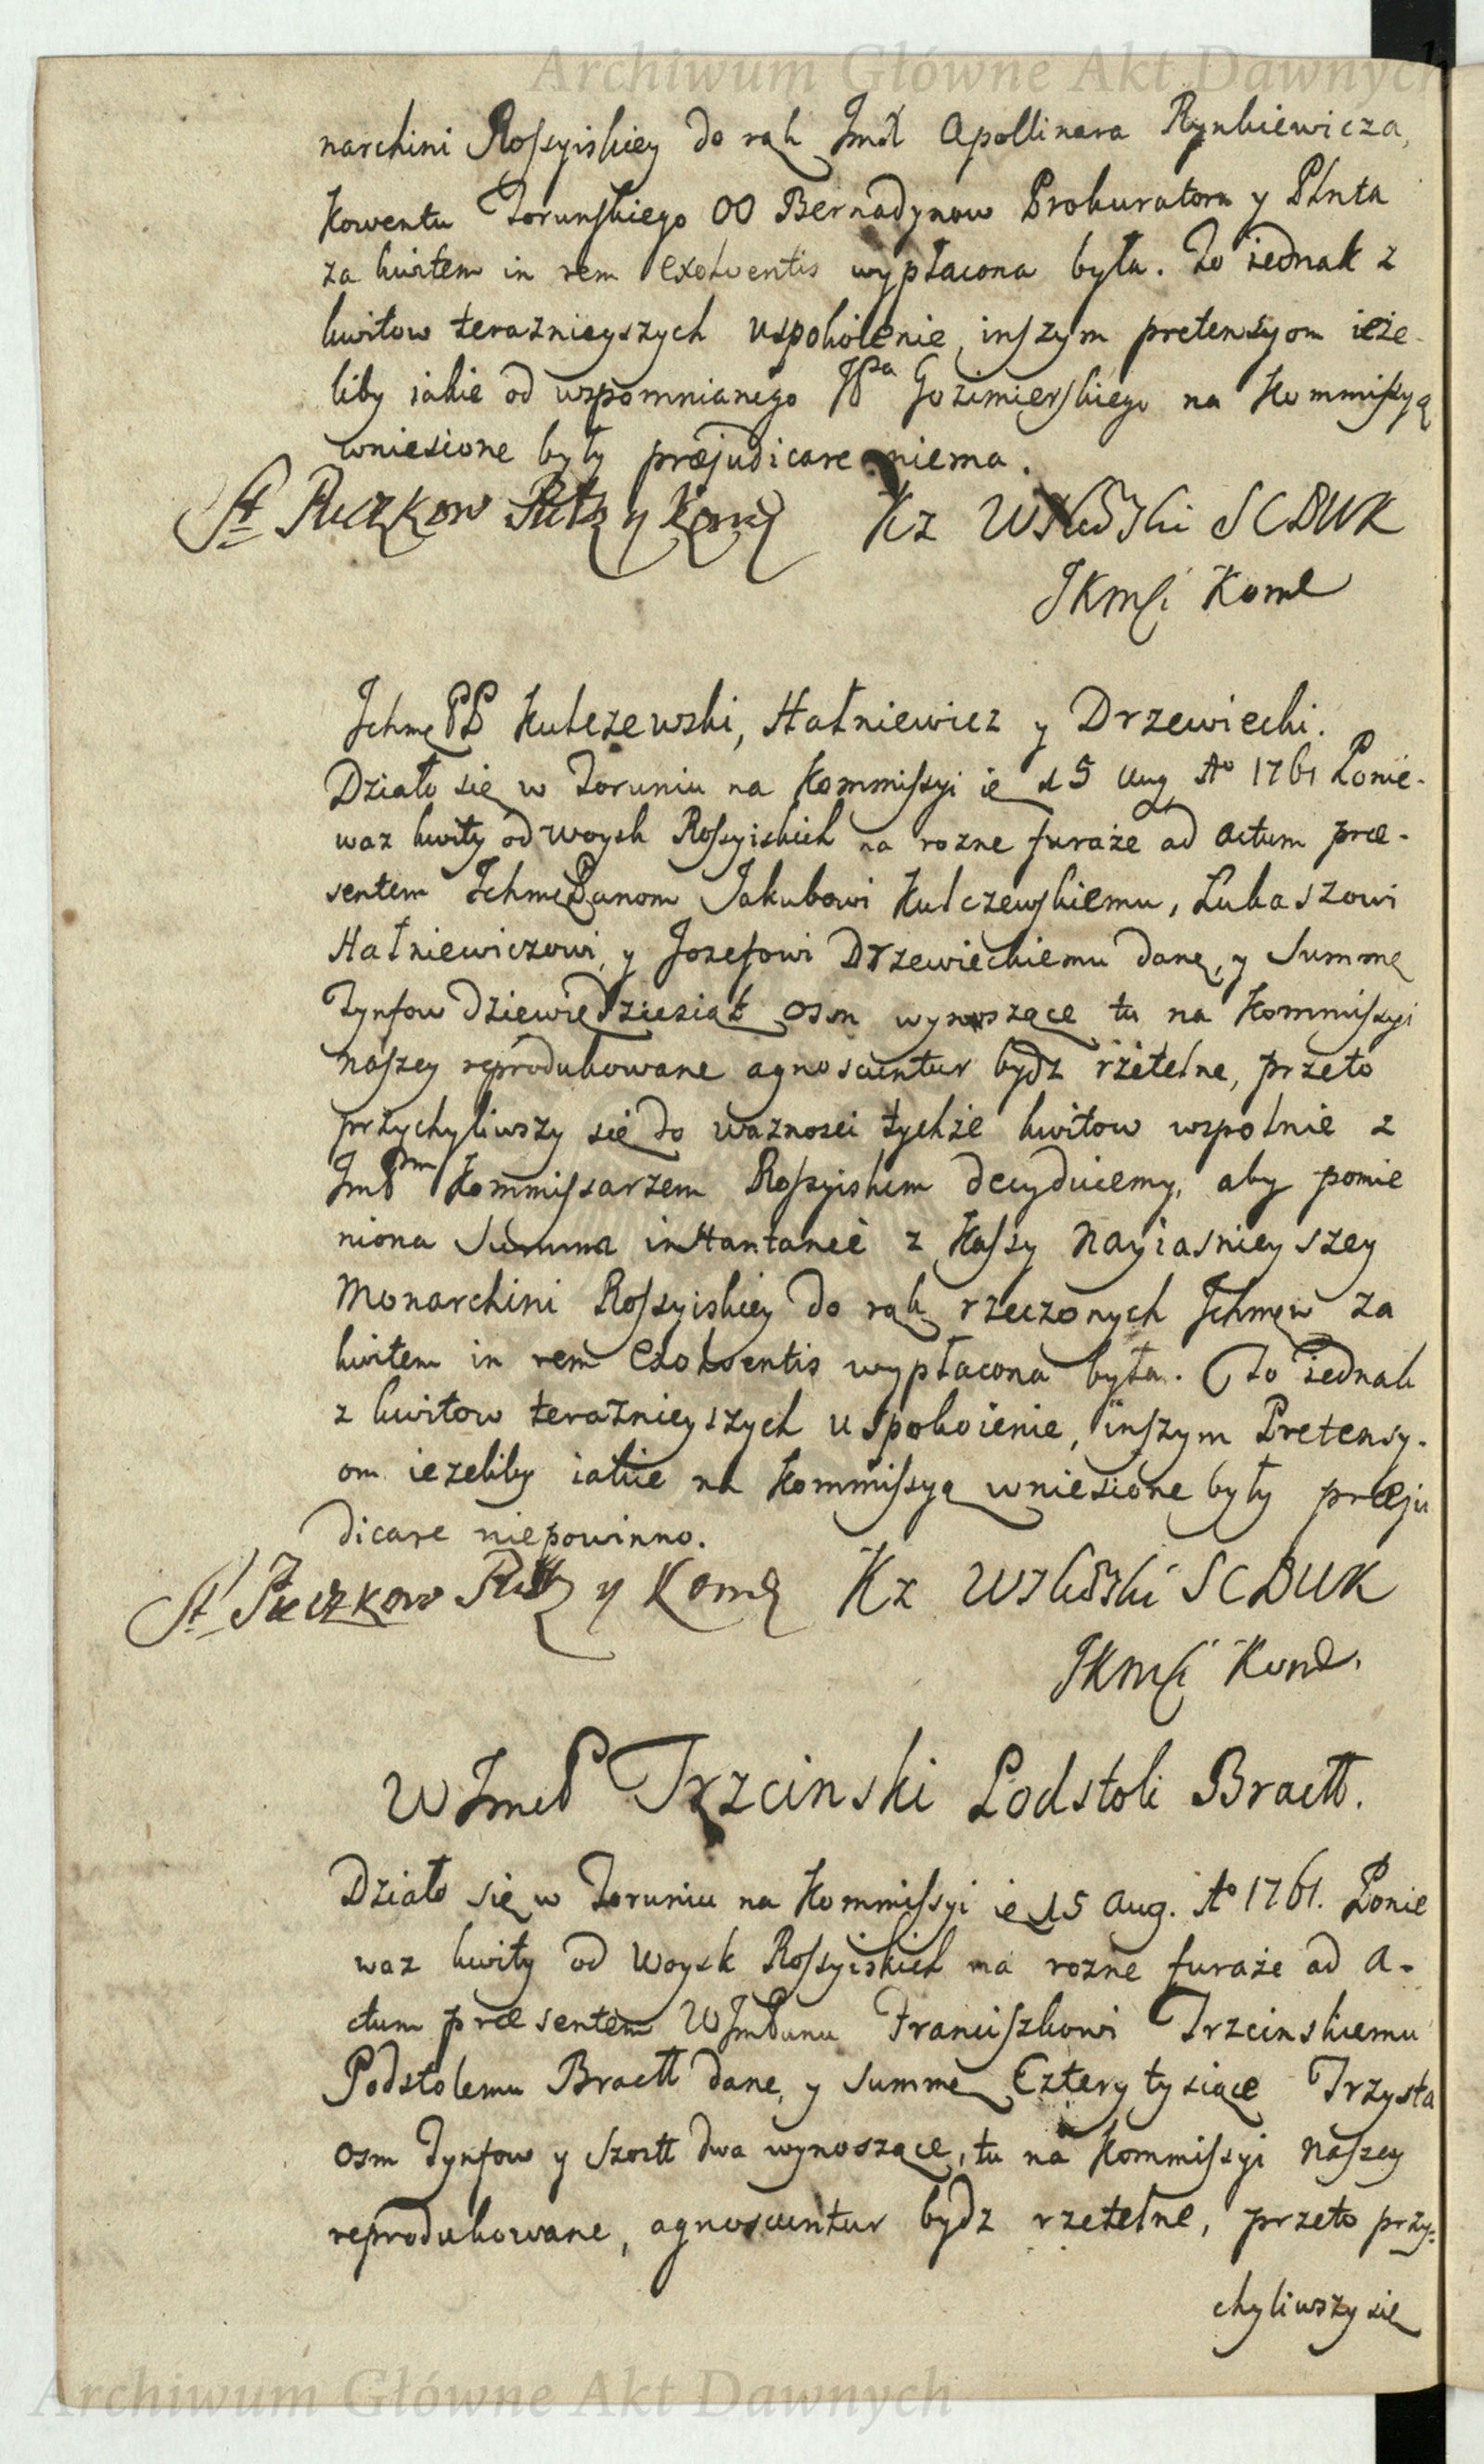 Archiwum Główne Akt Dawnych
narchini Rossyiskiey do rąk Jmći Apollinara Rynkiewicza,
Kowentu Torunskiego OO Bernadynow Prokuratora y Plnta
za kwitem in rem exolventis wypłacona była. To iednak z
kwitow teraznieyszych uspokoienie, inszym pretensyom ieże-
liby iakie od wspomnianego JPa Gozimierskiego na Kommissyą
wniesione były præjudicare niema.
Kz SCBWK
JKMći Kom
Jchmć PP Kulczewski, Hałniewicz y Drzewiecki.
Działo się w Toruniu na Kommissyi ie 15 Aug Ao 1761 Ponie-
waz kwity od woysk Rossyiskich na rozne furaże ad actum præ-
sentem Jchmć Panom Jakubowi Kulczewskiemu, Łukaszowi
Hałniewiczowi, y Jozefowi Drzewieckiemu dane, y Summę
Tynfow dziewiedziesiąt osm wynoszące tu na Kommissyi
naszey reprodukowane agnoscuntur bydz rzetelne, przeto
przychyliwszy się do waznosci tychże kwitow wspolnie z
JmPm Kommissarzem Rossyiskim decyduiemy, aby pomie
niona Summa instantanee z Kassy Nayiasnieyszey
Monarchini Rossyiskiey do rąk rzeczonych Jchmćw za
kwitem in rem Exolventis wypłacona była. To iednak
z kwitow teraznieyszych uspokoienie, inszym Pretensy-
om iezeliby iakie na Kommissyą wniesione były præju
dicare niepowinno.
Kz SCBWK
JKMći Kom.
W JmćP Trzcinski Podstoli Bractt.
Działo się w Toruniu na Kommissyi ie 15 Aug. Ao 1761. Ponie
waz kwity od Woysk Rossyiskich na rozne furaże ad a-
ctum præsentem WJmPanu Franciszkowi Trzcinskiemu
Podstolemu Bractt dane, y Summę Cztery tysiące Trzysta
osm Tynfow y Szostt dwa wynoszące, tu na Kommissyi Naszey
reprodukowane, agnoscuntur bydz rzetelne, przeto przy-
chyliwszy się
Archiwum Główne Akt Dawnych